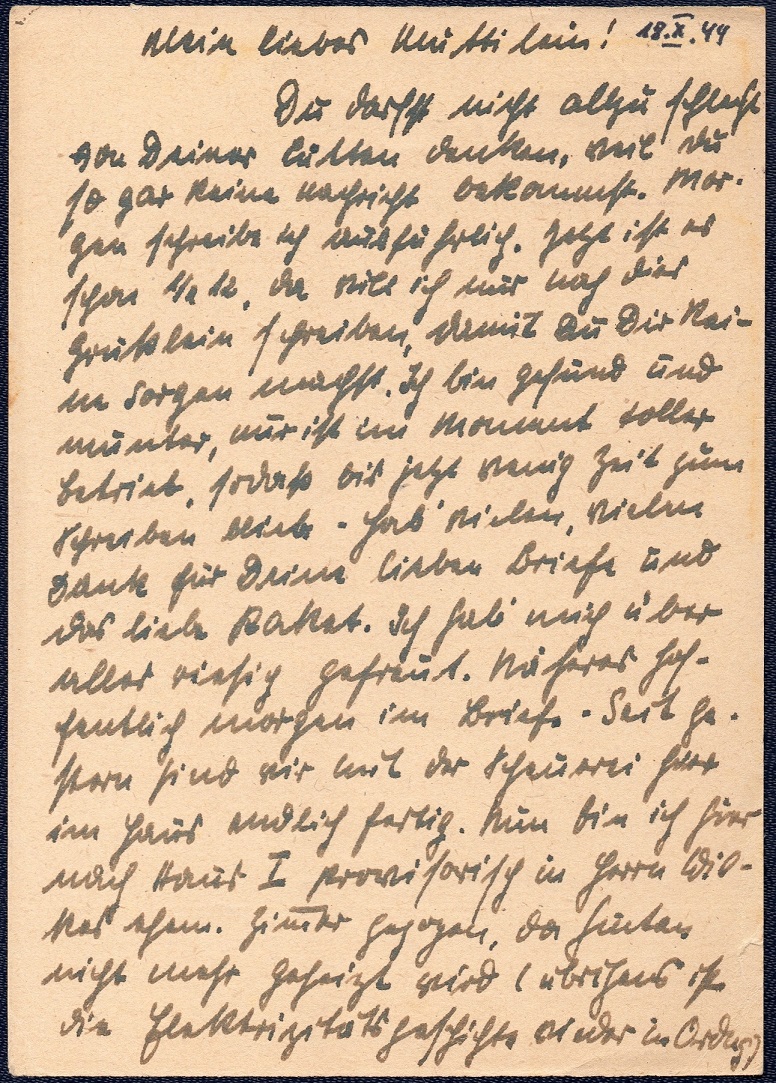 Mein liebes Muttilein! 18.X.44
Du darfst nicht allzu schlecht
von Deiner Lütten denken, weil Du
so gar keine Nachricht bekommst. Mor-
gen schreibe ich ausführlich. Jetzt ist es
schon 1/2 12, da will ich nur noch dies
Grüßlein schreiben, damit Du Dir kei-
ne Sorgen machst. Ich bin gesund und
munter, nur ist im Moment toller
Betrieb, sodaß bis jetzt wenig Zeit zum
Schreiben blieb - Hab' vielen, vielen
Dank für Deine lieben Briefe und
das liebe Paket. Ich hab' mich über
alles riesig gefreut. Näheres hof-
fentlich morgen im Briefe - Seit ge-
stern sind wir mit der Scheuerei hier
im Haus endlich fertig. Nun bin ich hier
nach Haus I provisorisch in Herrn
ehem. Zimmer gezogen, da hinten
nicht mehr geheizt wird (übrigens ist
die Elektrizitätsgeschichte wieder in Ordng.)